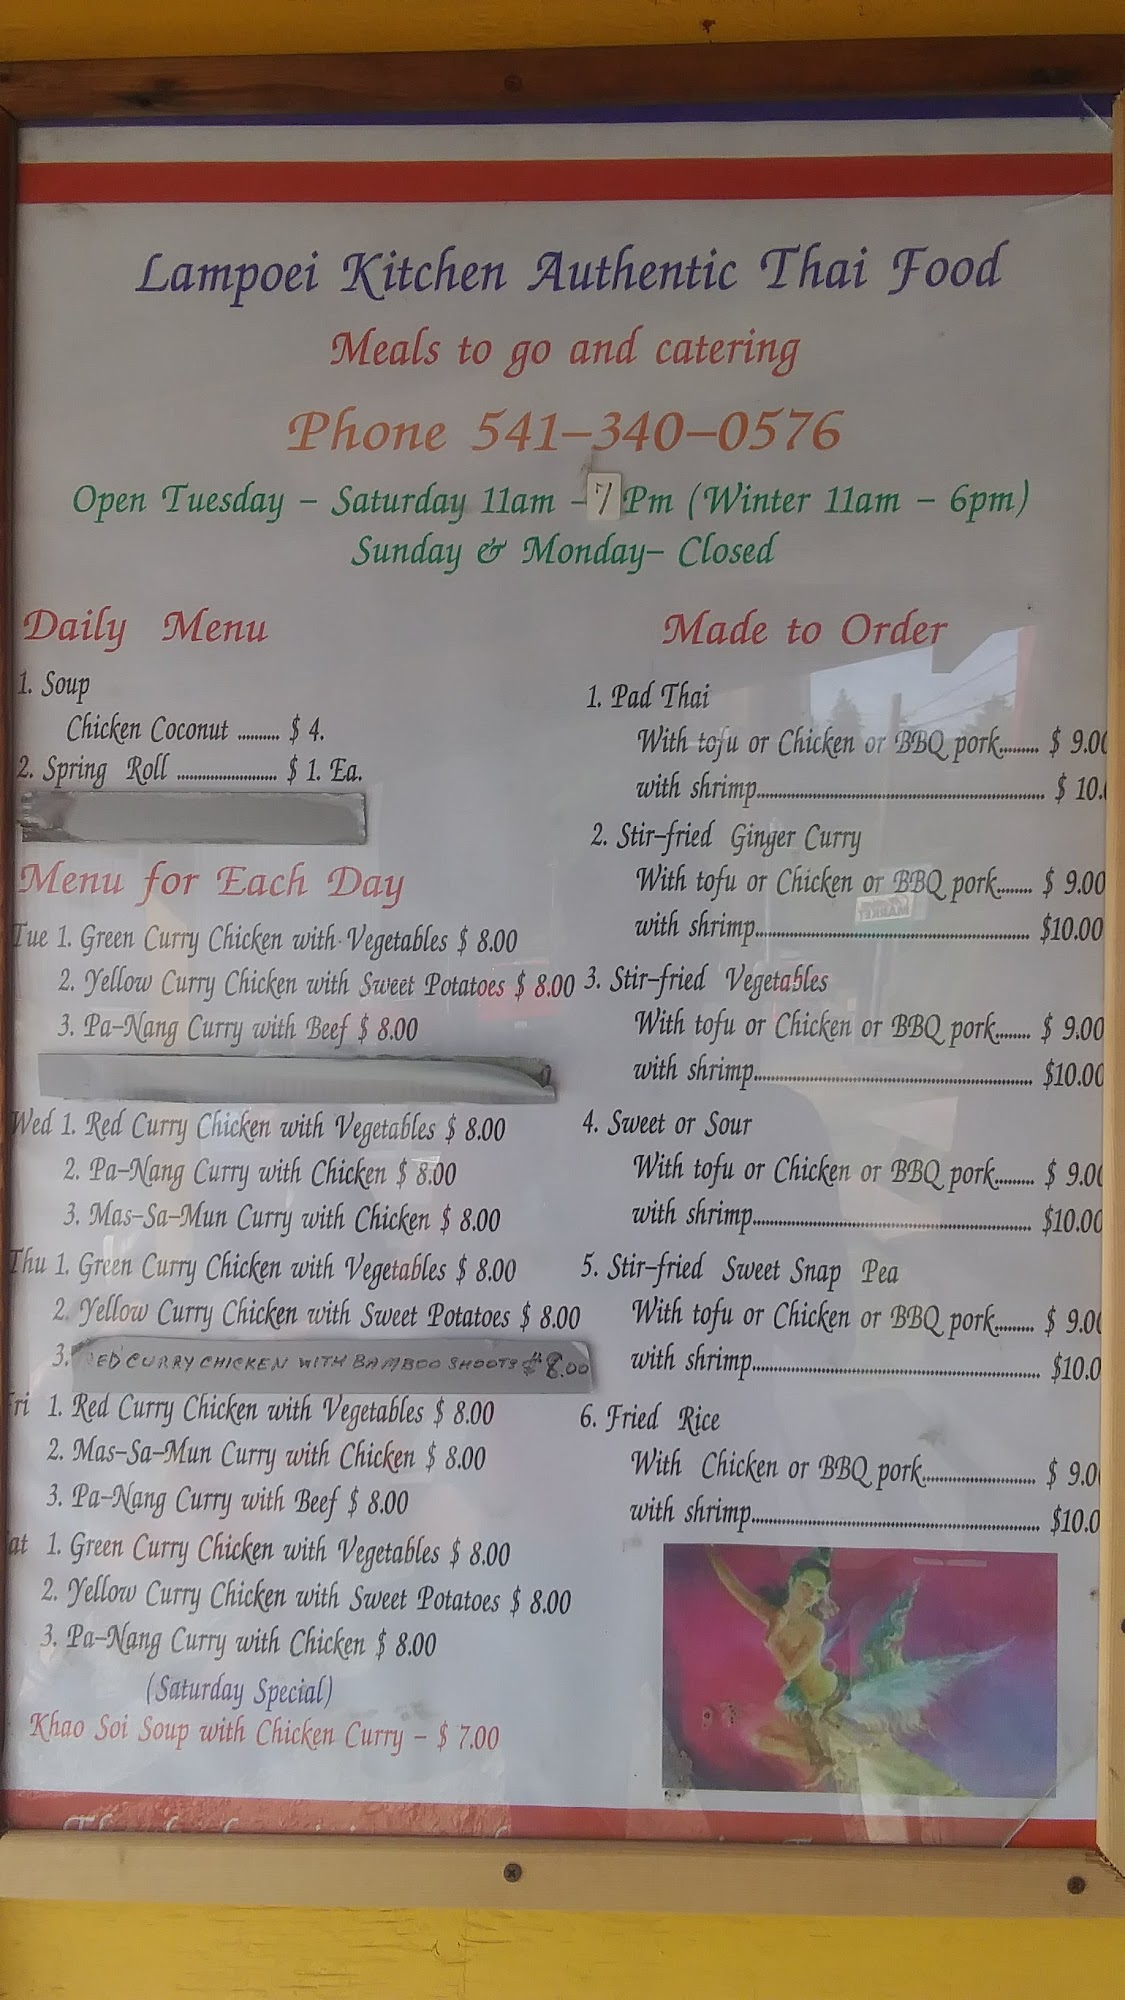 Lampoei Kitchen Authentic Thai Food
Meals to go and catering
Phone 541-340-0576
Open Tuesday - Saturday 11am - 7 Pm (Winter 11am - 6pm)
Sunday & Monday- Closed
Daily Menu
1. Soup
Chicken Coconut .......... $ 4.
2. Spring Roll ......................... $ 1. Ea.
Menu for Each Day
Tue 1. Green Curry Chicken with Vegetables $ 8.00
2. Yellow Curry Chicken with Sweet Potatoes $ 8.00
3. Pa-Nang Curry with Beef $ 8.00
Wed 1. Red Curry Chicken with Vegetables $ 8.00
2. Pa-Nang Curry with Chicken $ 8.00
3. Mas-Sa-Mun Curry with Chicken $ 8.00
Thu 1. Green Curry Chicken with Vegetables $ 8.00
2. Yellow Curry Chicken with Sweet Potatoes $ 8.00
3. ED CURRY CHICKEN WITH BAMBOO SHOOTS $8.00
ri 1. Red Curry Chicken with Vegetables $ 8.00
2. Mas-Sa-Mun Curry with Chicken $ 8.00
3. Pa-Nang Curry with Beef $ 8.00
at 1. Green Curry Chicken with Vegetables $ 8.00
2. Yellow Curry Chicken with Sweet Potatoes $ 8.00
3. Pa-Nang Curry with Chicken $ 8.00
(Saturday Special)
Khao Soi Soup with Chicken Curry - $ 7.00
Made to Order
1. Pad Thai
With tofu or Chicken or BBQ pork......... $ 9.00
with shrimp.................................................... $ 10.
2. Stir-fried Ginger Curry
With tofu or Chicken or BBQ pork........ $ 9.00
with shrimp.................................................... $10.00
3. Stir-fried Vegetables
With tofu or Chicken or BBQ pork........ $ 9.00
with shrimp.................................................... $10.00
4. Sweet or Sour
With tofu or Chicken or BBQ pork......... $ 9.00
with shrimp.................................................... $10.00
5. Stir-fried Sweet Snap Pea
With tofu or Chicken or BBQ pork......... $ 9.00
with shrimp.................................................... $10.0
6. Fried Rice
With Chicken or BBQ pork........................ $ 9.0
with shrimp.................................................... $10.0